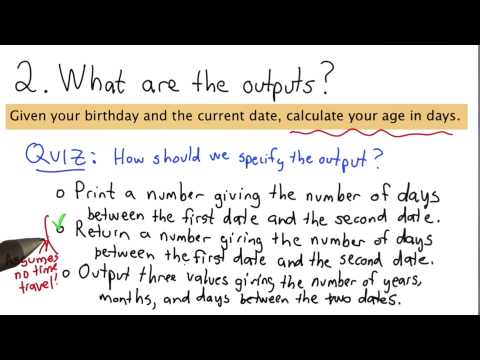 2. What are the outputs?
Given your birthday and the current date, calculate your age in days.
QUIZ: How should we specify the output?
Print a number giving the number of days
between the first date and the second date.
Return a number giving the number of days
between the first date and the second date.
Assumes
no time
travel!
Output three values giving the number of years,
months, and days between the two dates.